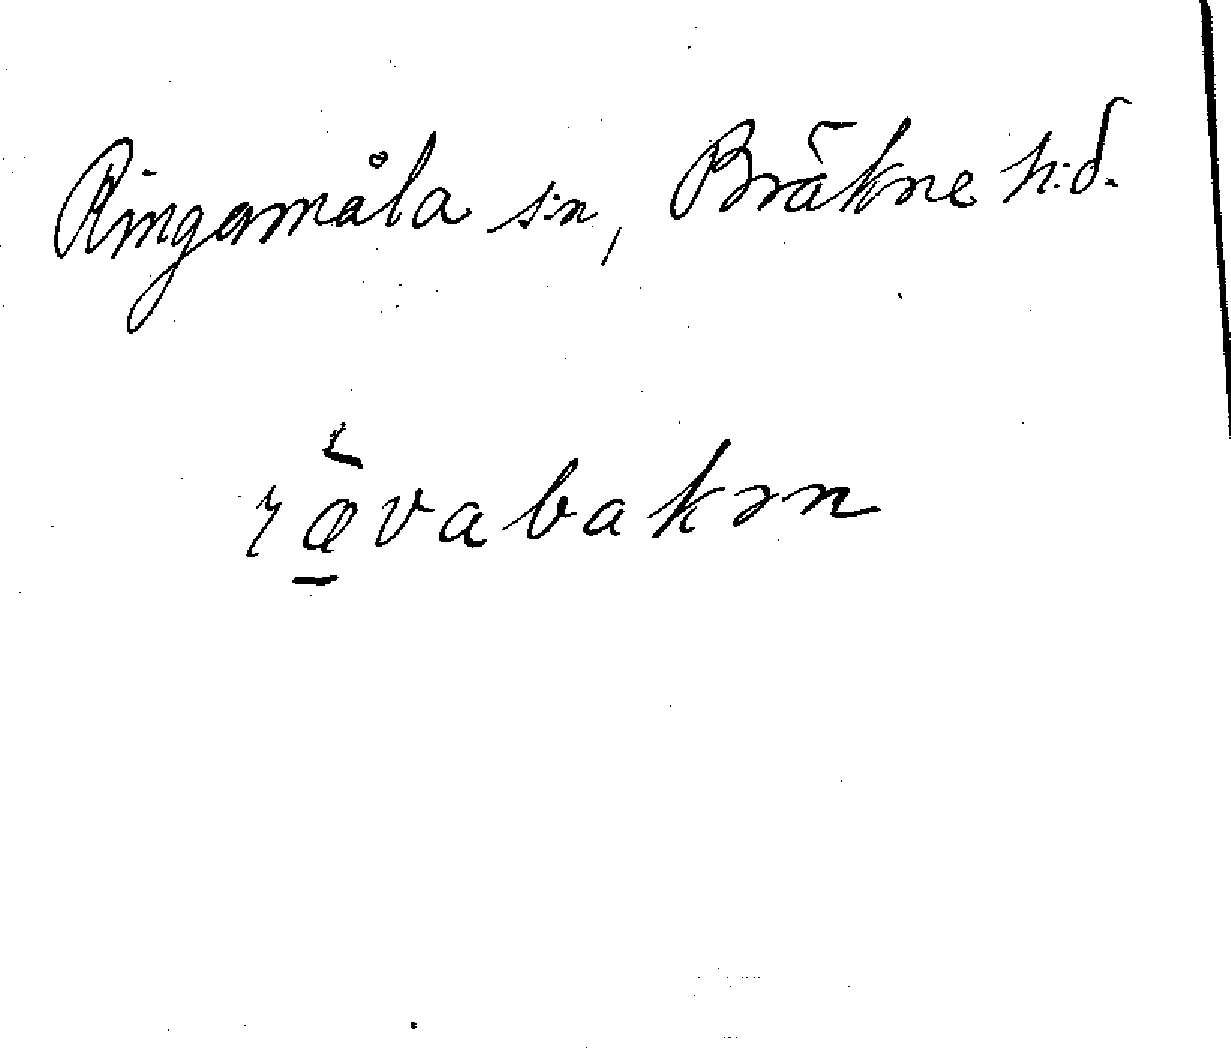 Ringamåla s:n, Bräkne h:d.
rævabakən